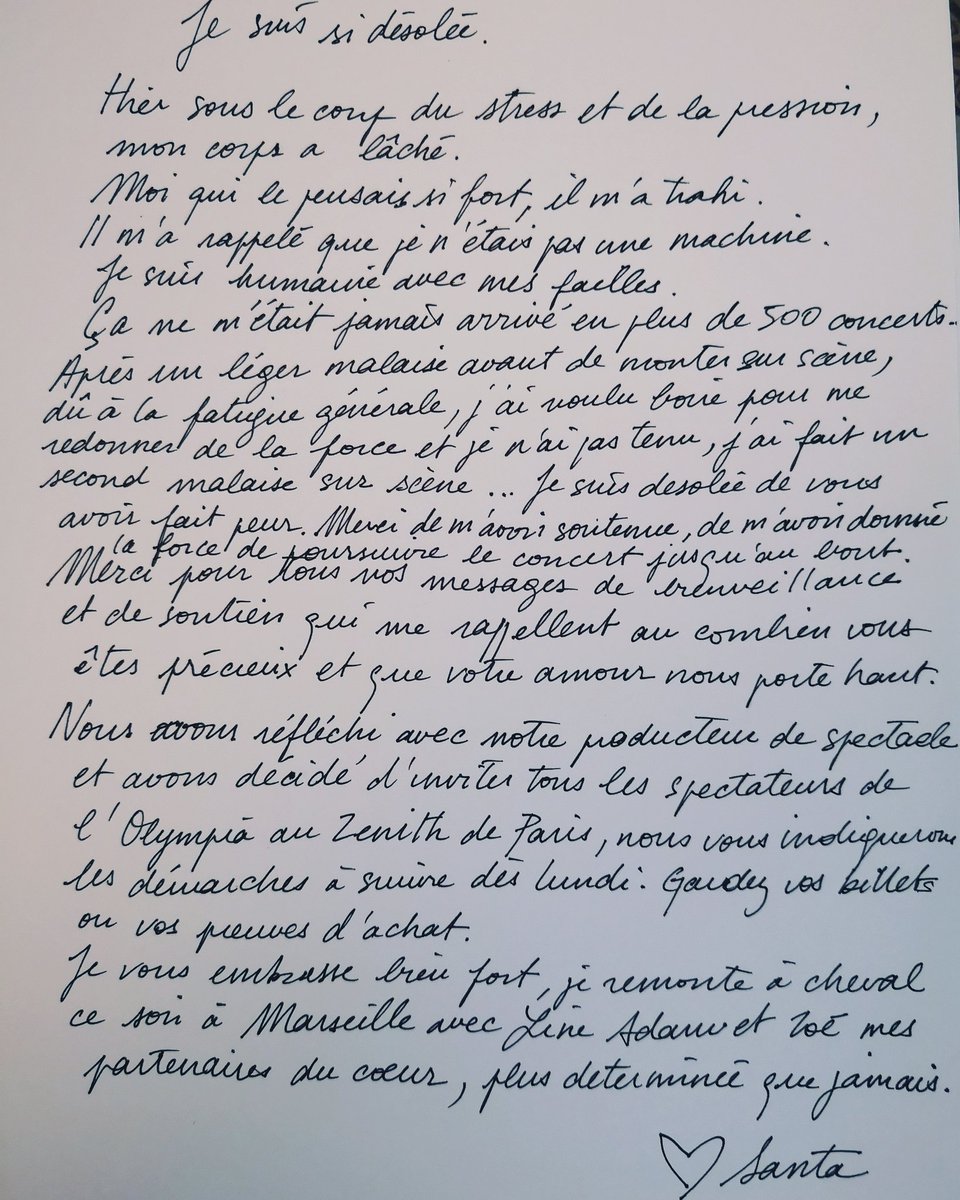 Je suis si désolée.
Hier sous le coup du stress et de la pression,
mon corps a lâché.
Moi qui le pensais si fort, il m'a trahi.
Il m'a rappelé que je n'étais pas une machine.
Je suis humaine avec mes failles.
Ça ne m'était jamais arrivé en plus de 500 concerts..
Après un léger malaise avant de monter sur scène,
dû à la fatigue générale, j'ai voulu boire pour me
redonner de la force et je n'ai pas tenu, j'ai fait un
second malaise sur scène... Je suis desolée de vous
avoir fait peur. Merci de m'avoir soutenue, de m'avoir donné
la force de poursuivre le concert jusqu'au bout.
Merci pour tous vos messages de bienveillance
et de soutien qui me rappellent au combien vous
êtes précieux et que votre amour nous porte haut.
Nous avons réfléchi avec notre producteur de spectacle
et avons décidé d'inviter tous les spectateurs de
l'Olympia au Zenith de Paris, nous vous indiquerons
les démarches à suivre dès lundi. Gardez vos billets
ou vos preuves d'achat.
Je vous embrasse bien fort, je remonte à cheval
ce soir à Marseille avec Line Adam et Zoé mes
partenaires du cœur, plus determinée que jamais.
♡ Santa